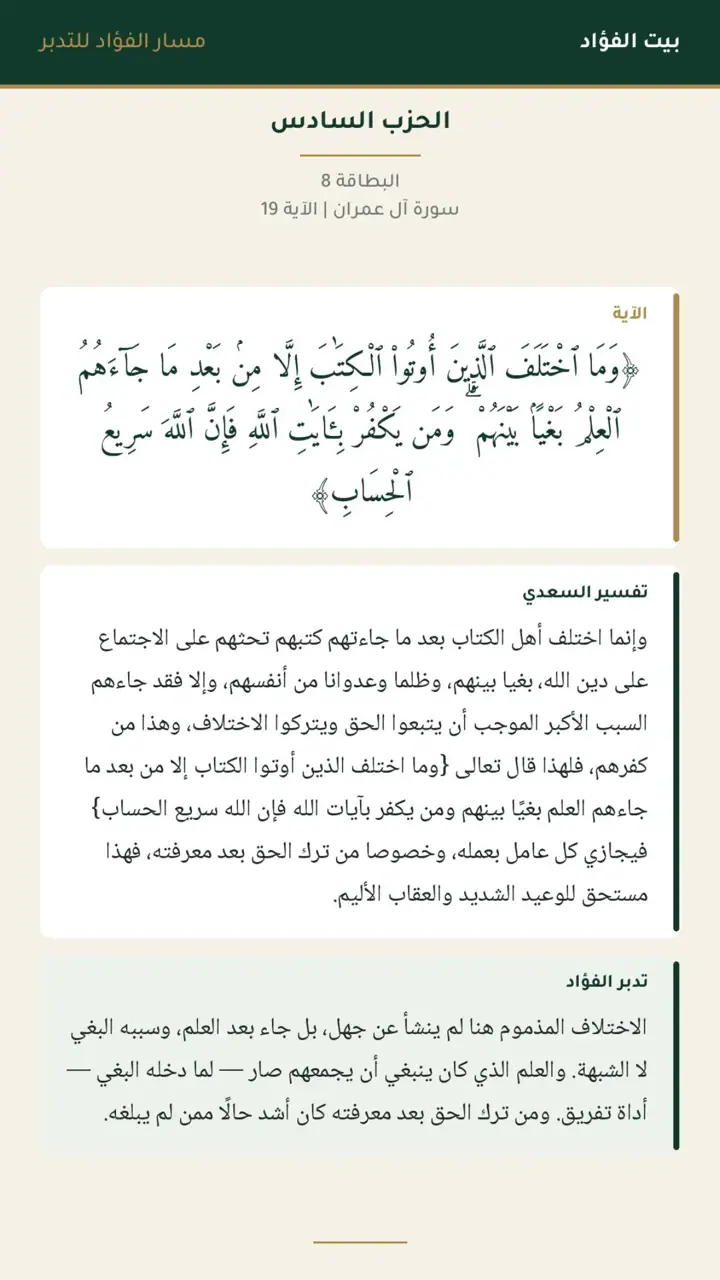 بيت الفؤاد
مسار الفؤاد للتدبر
الحزب السادس
البطاقة 8
سورة آل عمران | الآية 19
الآية
﴿وَمَا ٱخْتَلَفَ ٱلَّذِينَ أُوتُوا۟ ٱلْكِتَٰبَ إِلَّا مِنۢ بَعْدِ مَا جَآءَهُمُ
ٱلْعِلْمُ بَغْيًۢا بَيْنَهُمْ ۗ وَمَن يَكْفُرْ بِـَٔايَٰتِ ٱللَّهِ فَإِنَّ ٱللَّهَ سَرِيعُ
ٱلْحِسَابِ﴾
تفسير السعدي
وإنما اختلف أهل الكتاب بعد ما جاءتهم كتبهم تحثهم على الاجتماع
على دين الله، بغيا بينهم، وظلما وعدوانا من أنفسهم، وإلا فقد جاءهم
السبب الأكبر الموجب أن يتبعوا الحق ويتركوا الاختلاف، وهذا من
كفرهم، فلهذا قال تعالى {وما اختلف الذين أوتوا الكتاب إلا من بعد ما
جاءهم العلم بغيًا بينهم ومن يكفر بآيات الله فإن الله سريع الحساب}
فيجازي كل عامل بعمله، وخصوصا من ترك الحق بعد معرفته، فهذا
مستحق للوعيد الشديد والعقاب الأليم.
تدبر الفؤاد
الاختلاف المذموم هنا لم ينشأ عن جهل، بل جاء بعد العلم، وسببه البغي
لا الشبهة. والعلم الذي كان ينبغي أن يجمعهم صار — لما دخله البغي —
أداة تفريق. ومن ترك الحق بعد معرفته كان أشد حالًا ممن لم يبلغه.